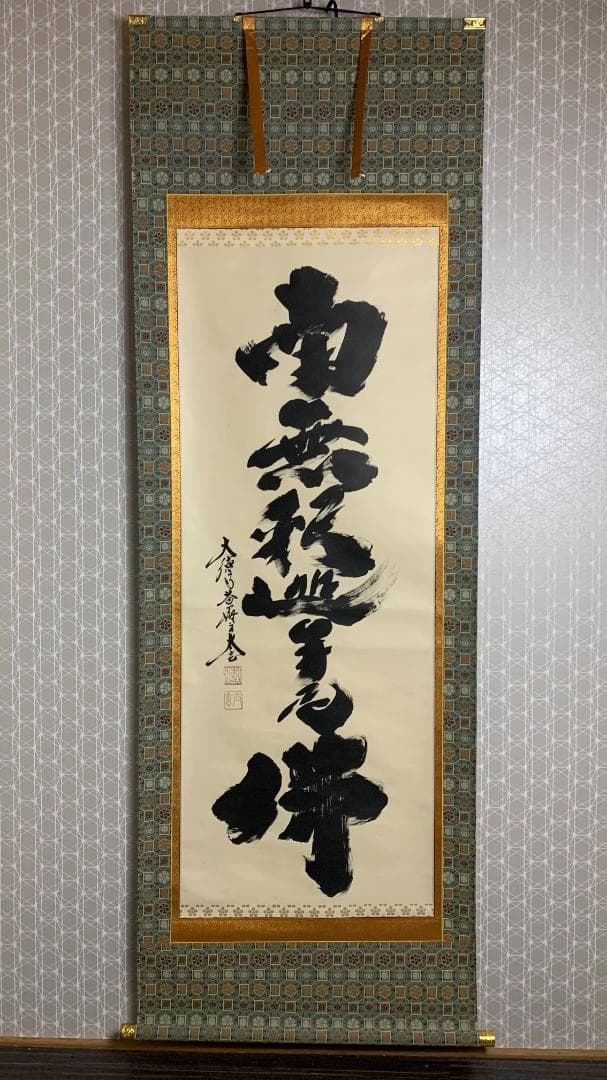 南無釈迦牟尼佛
大徳